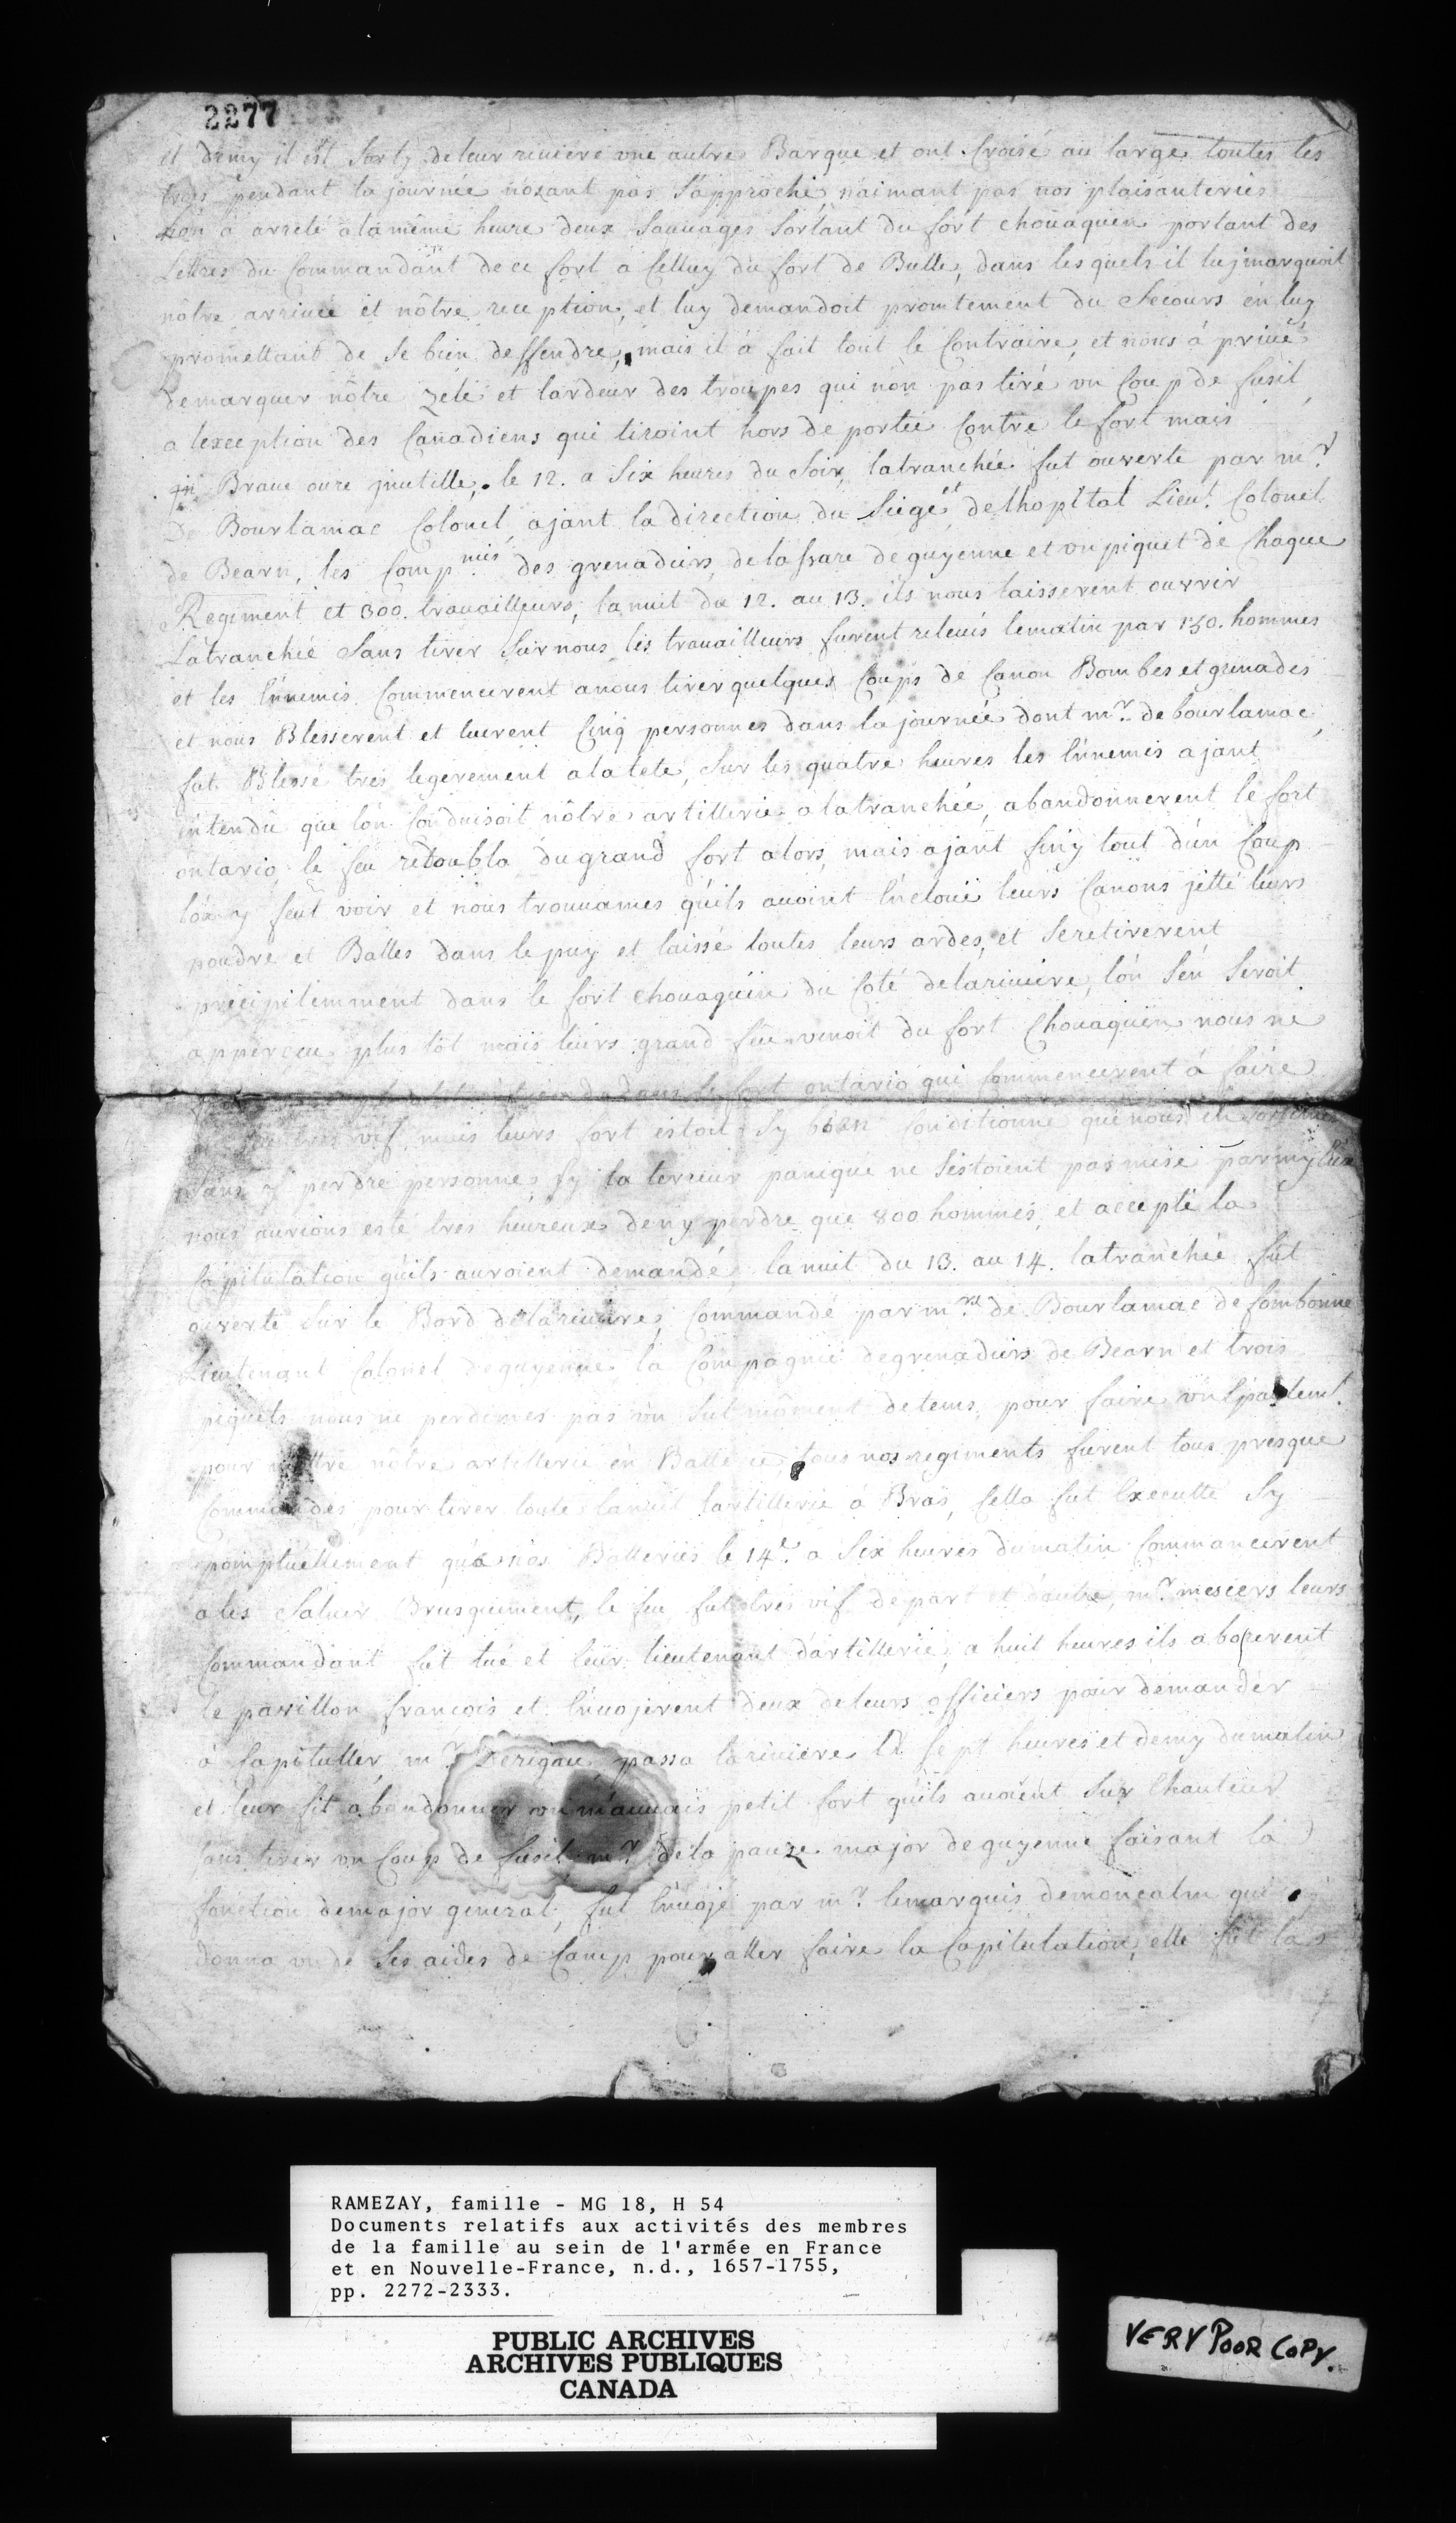 2277
et demy il est sorty de leur riuiere vne autre Barque et ont Croisé au large toutes les
trois pendant la journée n'ozant pas s'approché, n'aimant pas nos plaisanteries
lón a arreté a la même heure deux Sauuages Sortant du fort chouaquen portant des
Lettres du Commandant de ce fort a Celluy du fort de Bulle, dans les quels il luj marquoit
nôtre arriuée et nôtre reception, et luy demandoit promtement du Secours en luy
promettant de se bien deffendre, mais il á fait tout le Contraire, et nous á priué
de marquer nôtre zele et lardeur des troupes qui nòn pas tiré vn Coup de fusil
a lexception des Canadiens qui tiroint hors de portée Contre le fort mais
Braue oure jnutille, le 12. a Six heures du Soir, latranchée fut ouuerte par mr.
De Bourlamac Colonel, ajant la direction du Siege et delhopital Lieut. Colonel
de Bearn, les Compnies des grenadiers, de lasare de guyenne et vn piquet de Chaque
Regiment et 300. trauailleurs, la nuit du 12. au 13. ils nous laisserent ouvrir
Latranchée Sans tirer Sur nous les trauailleurs furent releués lematin par 150. hommes
et les Ennemis Commencerent anous tirer quelques Coups de Canon Bombes et grenades
et nous Blesserent et tuerent Cinq personnes dans la journée dont mr. de bourlamac,
fut Blessé tres legerement a la tete, Sur les quatre heures les Ennemis ajant
entendu que lón Conduisoit nôtre artillerie a latranchée, abandonnerent le fort
ontario le feu redoubla du grand fort alors, mais ajant finy tout dún Coup
lón y feut voir et nous trouuames quils auoint Encloué leurs Canons jetté leurs
poudre et Balles dans le puy et laissé toutes leurs ardes, et Seretirerent
precipitemment dans le fort chouaguin du Coté delariuiere, lón Sén Seroit
apperceu plus tôt mais leurs grand feu venoit du fort Chouaguin nous ne
dedans le fort ontario qui Commencerent á faire
vif mais leurs fort estoit Sy bien Conditionné que nous
sans y perdre personne, Sy la terreur panique ne Sestoient pas mise parmy Eux
nous aurions esté tres heureux deny perdre que 800 hommes, et accepté la
Capitulation quils auroient demandé, lanuit du 13. au 14. latranchée fut
ouverte Sur le Bord delariuiere, Commandé par mrs. de Bourlamac de fombonne
Lieutenant Colonel deguyenne la Compagnie degrenadiers de Bearn et trois
piquets nous ne perdimes pas vn Sul môment detems, pour faire vn Epaulemt.
pour mettre nôtre artillerie en Batterie, tous nos regiments furent tous presque
Commandés pour tirer toute lanuit lartillerie á Bras, Cella fut Executté Sy
pomptuellement quá nos Batteries le 14e. a Six heures dumatin Commancerent
ales Saluer Brusquement, le feu fut tres vif depart et dautre, mr. mesiers leurs
Commandant fut tué et leur lieutenant dartillerie, a huit heures ils aborerent
le pavillon françois et Enuojerent deux de leurs officiers pour demander
á Capituller, mr. Derigau passa lariuiere a Sept heures et demy dumatin
et leur fit abandonner vn mauuais petit fort quils auoient Sur lhauteur
sans tirer vn Coup de fusil mr. de la pauze major deguyenne faisant la
fonction demajor general, fut Enuojé par mr. lemarquis demoncalm qui
donna vn de Ses aides de Camp pour aller faire la Capitulation, elle fut la
RAMEZAY, famille - MG 18, H 54
Documents relatifs aux activités des membres
de la famille au sein de l'armée en France
et en Nouvelle-France, n.d., 1657-1755,
pp. 2272-2333.
PUBLIC ARCHIVES
ARCHIVES PUBLIQUES
CANADA
VERY POOR COPY.